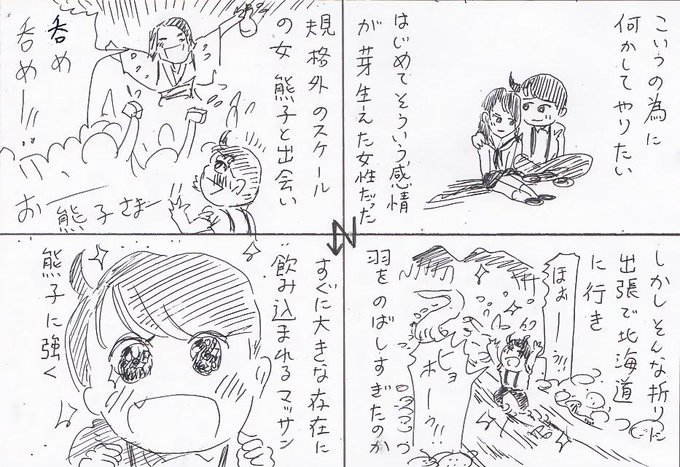 こいうの為に
何かしてやりたい
はじめてそういう感情
が芽生えた女性だった
しかしそんな折りに
出張で北海道
に行き
ほおーーう!!
ヒョホーーう!!
羽をのばしすぎたのか
規格外のスケール
の女 熊子と出会い
呑め
呑めーー!!
おー熊子さまー
N
すぐに大きな存在に
飲み込まれるマッサン
熊子に強く